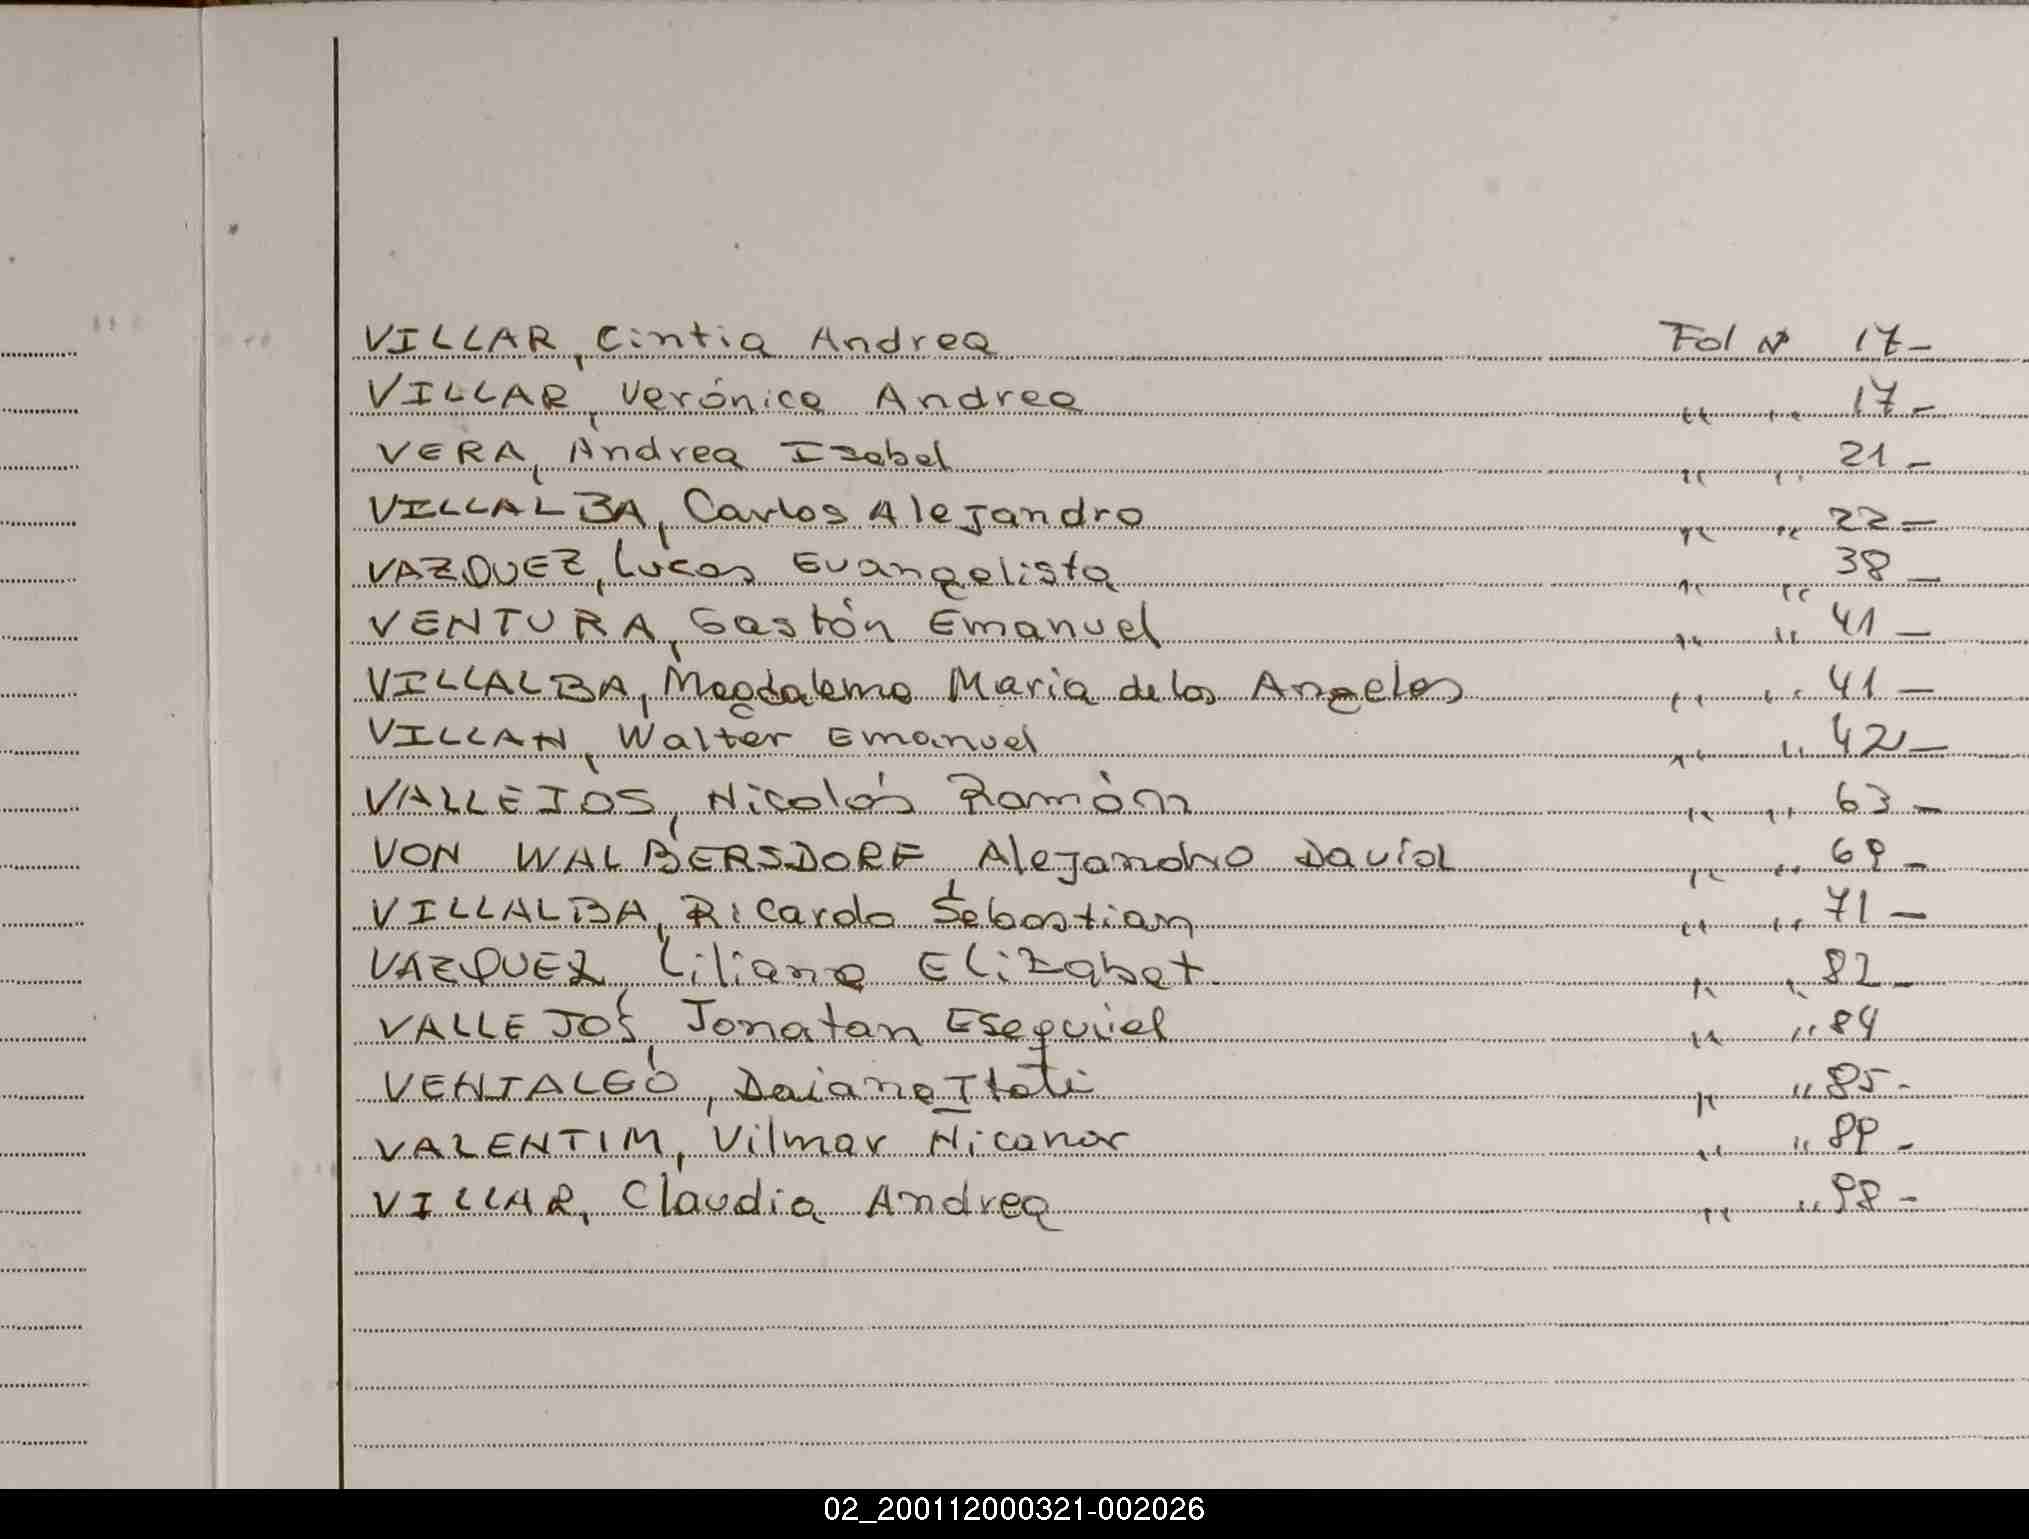 VILLAR, Cintia Andrea Fol Nº 17-
VILLAR, Verónica Andrea " " 17-
VERA, Andrea Isabel " " 21-
VILLALBA, Carlos Alejandro " " 22-
VAZQUEZ, Lucas Evangelista " " 38-
VENTURA, Gastón Emanuel " " 41-
VILLALBA, Magdalena Maria de los Angeles " " 41-
VILLAN, Walter Emanuel " " 42-
VALLEJOS, Nicolás Ramón " " 63-
VON WALBERSDORF Alejandro David " " 69-
VILLALBA, Ricardo Sebastian " " 71-
VAZQUEZ Liliana Elizabet. " " 82-
VALLEJOS, Jonatan Esequiel " " 84
VENIALGO, Daiana Itati " " 85-
VALENTIM, Vilmar Nicanor " " 89-
VILLAR, Claudia Andrea " " 98-
02_200112000321-002026